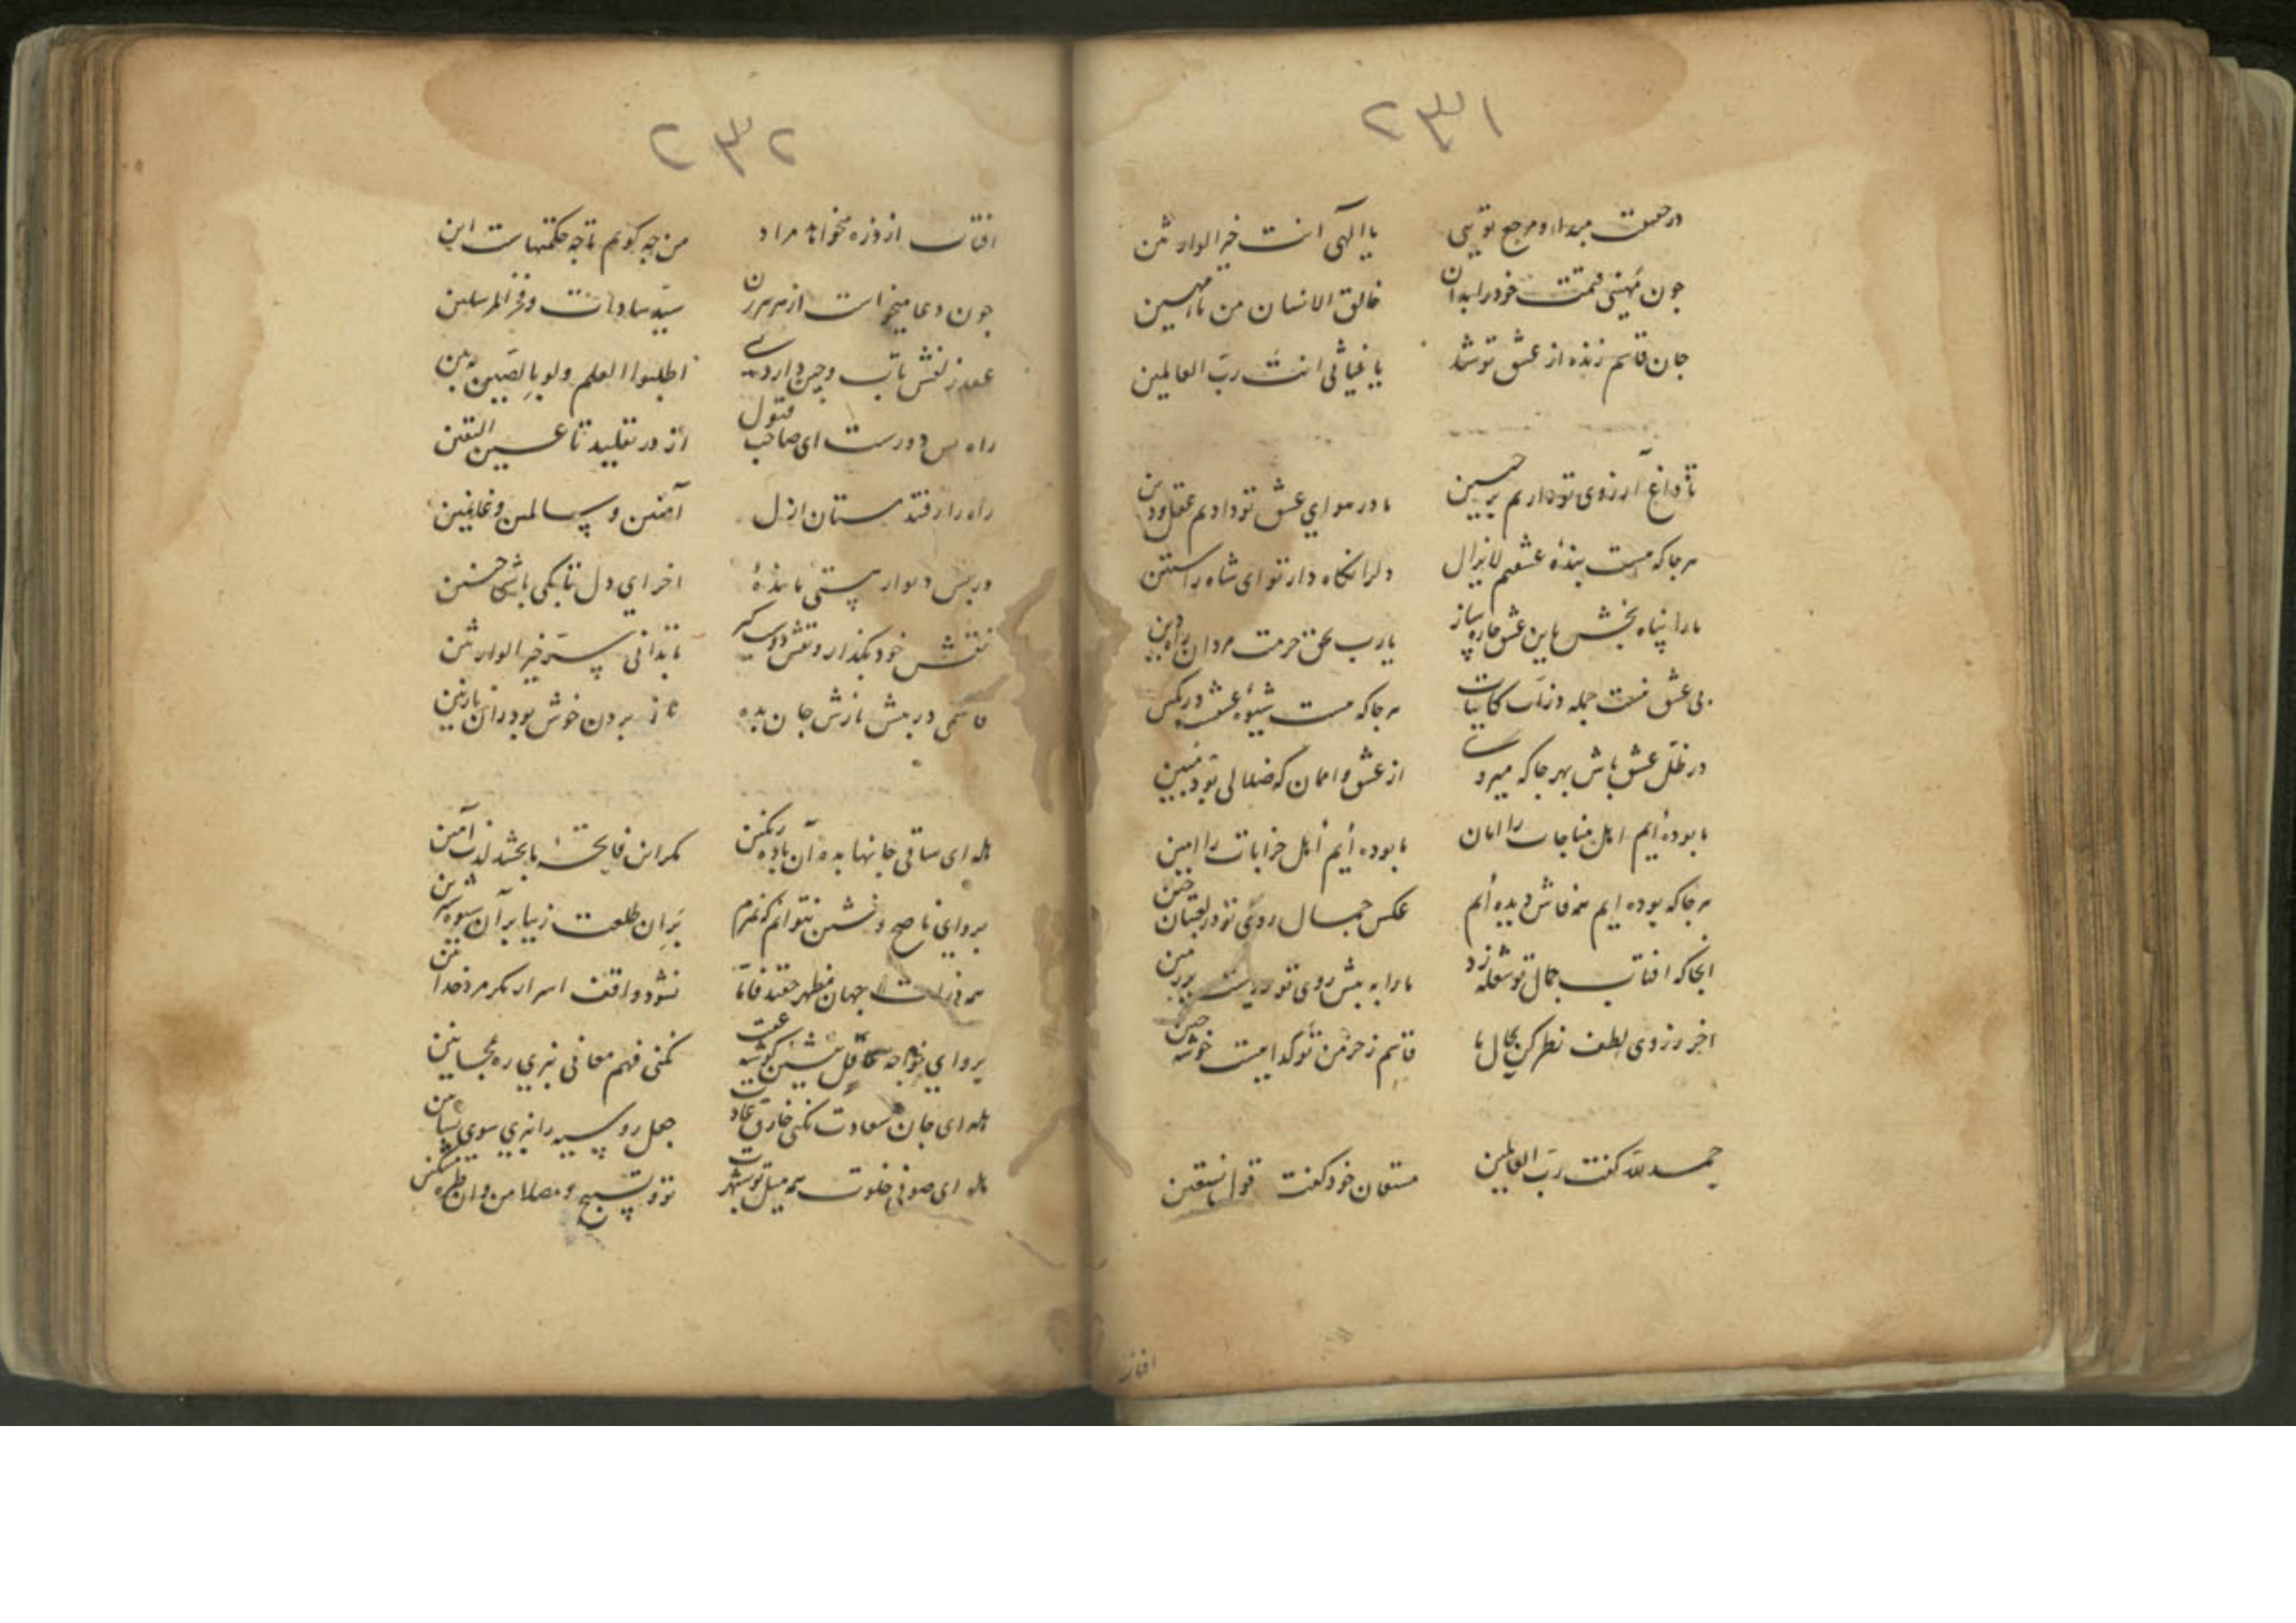 ۲۳۱
در حقیقت مبدا و مرجع تویی یا الهی انت خیر الوارثین
چون مهینی قیمت خود را بدان خالق الانسان من ماء مهین
جان قاسم زنده از عشق تو شد یا غیاثی انت رب العالمین
تا داغ آرزوی تو داریم بر جبین ما در هوای عشق تو دادیم عقل و دین
هر جا که هست بنده عشقیم لا یزال دلرا نگاه دار تو ای شاه راستین
ما را پناه بخش باین عشق چاره ساز یا رب بحق حرمت مردان راه دین
بی عشق نیست جمله ذرات کاینات هر جا که هست شیوه عشقست در کمین
در ظل عشق باش بهر جا که میروی از عشق وا ممان که ضلالی بود مبین
ما بوده ایم اهل مناجات را امان ما بوده ایم اهل خرابات را امین
هر جا که بوده ایم همه فاش دیده ایم عکس جمال روی تو در لعبتان چین
انجا که افتاب جمال تو شعله زد ما را به پیش روی تو رویست بر زمین
اخر ز روی لطف نظر کن بحال ما قاسم ز خرمن تو گداییست خوشه چین
حمد لله گفت رب العالمین مستعان خود گفت قول نستعین
افتاب
۲۳۲
افتاب از ذره میخواهد مراد من چه گویم تا چه حکمتهاست این
چون دعا میخواست از هر سید سادات و فخر المرسلین
عقد زلفش تاب و چین دارد بسی اطلبوا العلم ولو بالصین ببین
راه بس دورست ای صاحب قبول از در تقلید تا عین الیقین
راه را رفتند مستان ازل آمنین و سالمین و غانمین
در پس دیوار هستی مانده اخر ای دل تا بکی باشی چنین
نقش خود بگذار و نقش دوست گیر تا بدانی سر خیر الوارثین
قاسمی در پیش نازش جان بده ناز بردن خوش بود زان نازنین
هله ای ساقی جانها بده آن باده رنگین مگر این فاتحه ما بخشد لذت آمین
برو ای ناصح و بنشین نتوانم که نمیرم بر ان طلعت زیبا بر آن شیوه شیرین
همه ذرات جهان مظهر حقند فاما نشود واقف اسرار مگر مرد خدا بین
برو ای خواجه عاقل بنشین گوشه عقلت نکنی فهم معانی نبری ره بمجانین
هله ای جان سعادت نکنی خارق عادت جعل روسیه را نبری سوی بساتین
هله ای صوفی خلوت همه میل تو بشهرت تو و تسبیح و مصلا من و ان طره مشکین